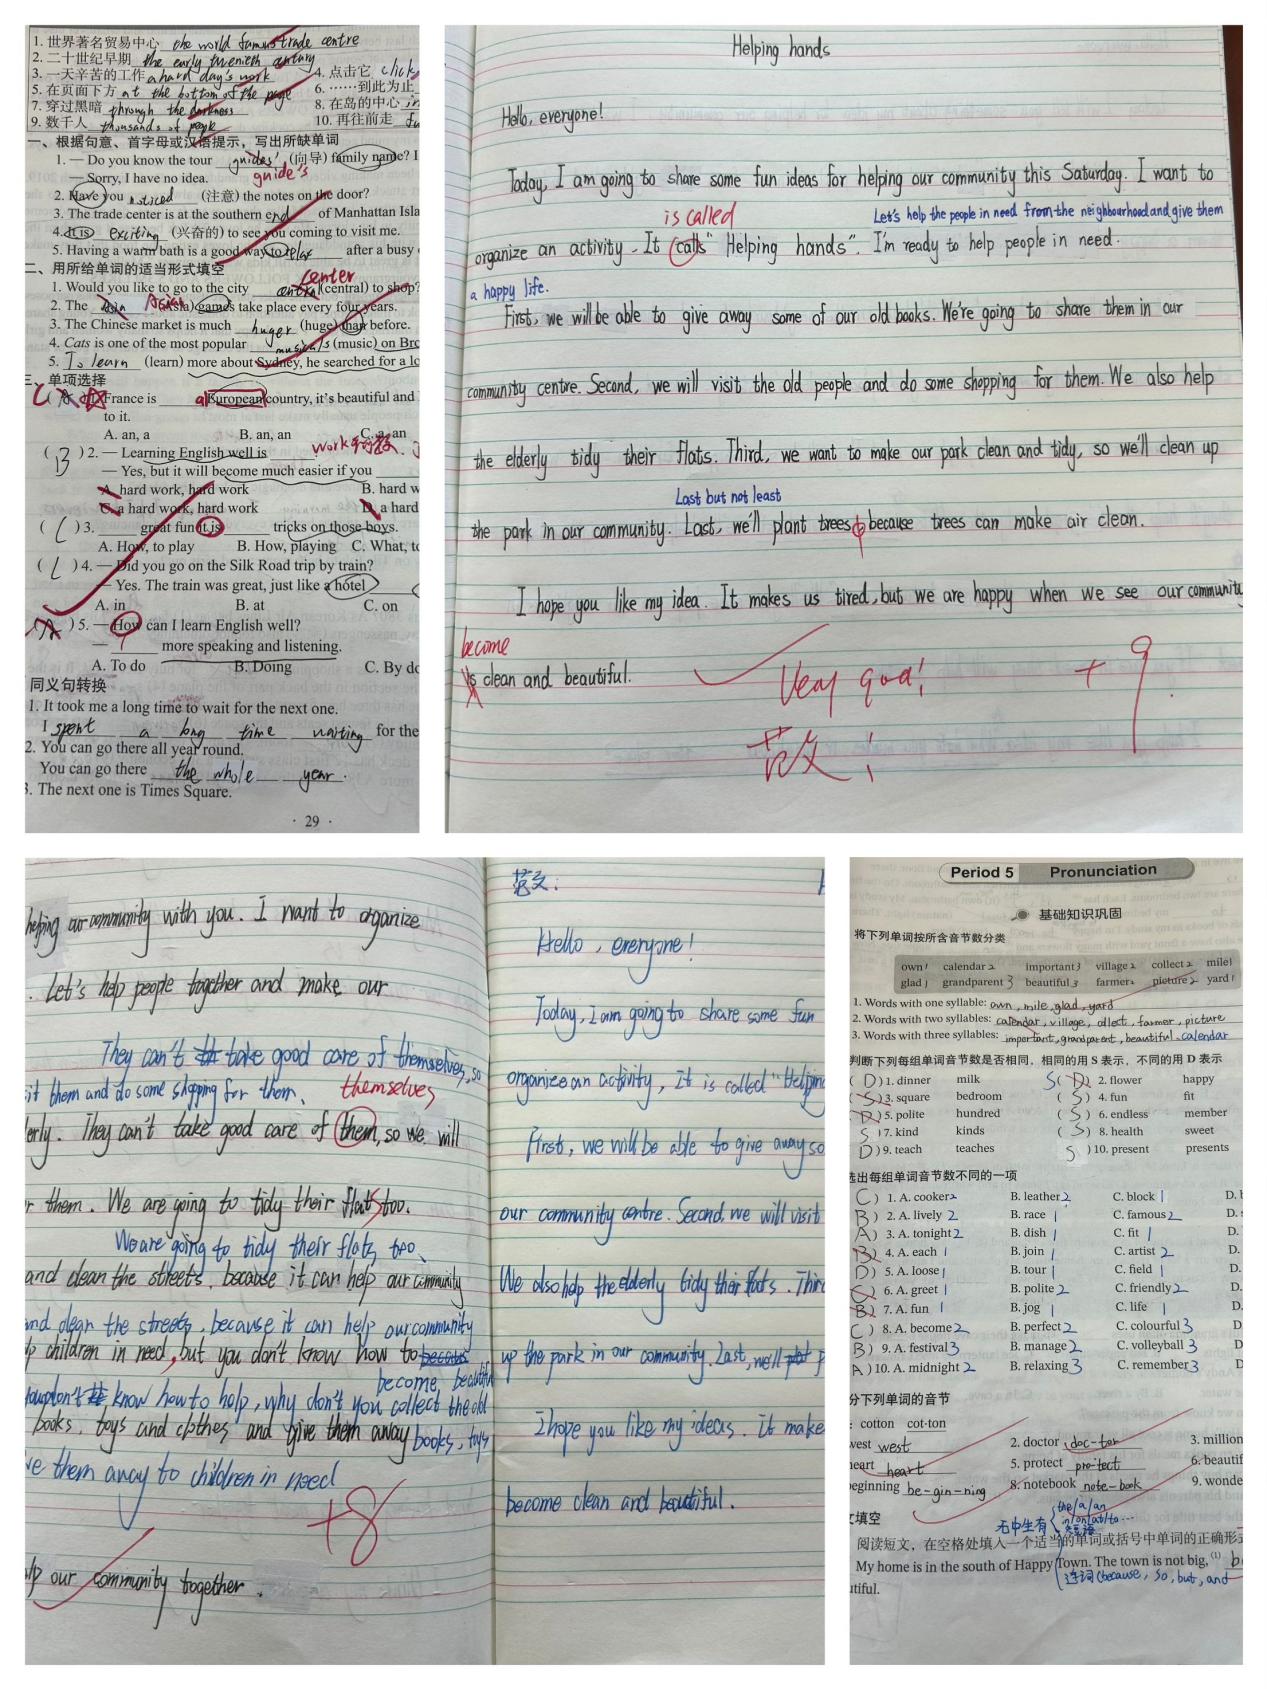 1. 世界著名贸易中心 the world famous trade centre
2. 二十世纪早期 the early twentieth century
3. 一天辛苦的工作 a hard day's work 4. 点击它 click
5. 在页面下方 at the bottom of the page 6. ……到此为止
7. 穿过黑暗 through the darkness 8. 在岛的中心 in
9. 数千人 thousands of people 10. 再往前走
一、根据句意、首字母或汉语提示，写出所缺单词
1. — Do you know the tour guides' (向导) family name? I
— Sorry, I have no idea. guide's
2. Have you noticed (注意) the notes on the door?
3. The trade center is at the southern end of Manhattan Isla
4. It is exciting (兴奋的) to see you coming to visit me.
5. Having a warm bath is a good way to relax after a busy
二、用所给单词的适当形式填空
center
1. Would you like to go to the city central (central) to shop?
2. The Asian (Asia) games take place every four years.
3. The Chinese market is much huger (huge) than before.
4. Cats is one of the most popular musicals (music) on Bro
5. To learn (learn) more about Sydney, he searched for a lo
三、单项选择
C 1. France is a European country, it's beautiful and
to it.
A. an, a B. an, an C. a, an
( B ) 2. — Learning English well is work
— Yes, but it will become much easier if you
A. hard work, hard work B. hard w
C. a hard work, hard work D. a hard
( C ) 3. great fun it is tricks on those boys.
A. How, to play B. How, playing C. What, to
( C ) 4. — Did you go on the Silk Road trip by train?
— Yes. The train was great, just like a hotel
A. in B. at C. on
( A ) 5. — How can I learn English well?
— more speaking and listening.
A. To do B. Doing C. By do
同义句转换
1. It took me a long time to wait for the next one.
I spent a long time waiting for the
2. You can go there all year round.
You can go there the whole year.
3. The next one is Times Square.
· 29 ·
Helping hands
Hello, everyone!
Today, I am going to share some fun ideas for helping our community this Saturday. I want to
is called Let's help the people in need from the neighbourhood and give them
organize an activity. It calls "Helping hands". I'm ready to help people in need.
a happy life.
First, we will be able to give away some of our old books. We're going to share them in our
community centre. Second, we will visit the old people and do some shopping for them. We also help
the elderly tidy their flats. Third, we want to make our park clean and tidy, so we'll clean up
Last but not least
the park in our community. Last, we'll plant trees, because trees can make air clean.
I hope you like my idea. It makes us tired, but we are happy when we see our community
become
is clean and beautiful.
Very good! +9
范文!
helping our community with you. I want to organize
. Let's help people together and make our
They can't take good care of themselves, so
it them and do some shopping for them. themselves
erly. They can't take good care of them, so we will
r them. We are going to tidy their flats too.
We are going to tidy their flats too.
and clean the streets, because it can help our community
and clean the streets, because it can help our community
p children in need, but you don't know how to
become beautiful
you don't know how to help, why don't you collect the old
books, toys and clothes and give them away books, toys
ve them away to children in need
+8
lp our community together.
范文:
Hello, everyone!
Today, I am going to share some fun
organize an activity, It is called "Helping
First, we will be able to give away so
our community centre. Second, we will visit
We also help the elderly tidy their flats. Thir
up the park in our community. Last, we'll p
I hope you like my ideas. It make
become clean and beautiful.
Period 5 Pronunciation
基础知识巩固
将下列单词按所含音节数分类
own 1 calendar 2 important 3 village 2 collect 2 mile 1
glad 1 grandparent 3 beautiful 3 farmer 2 picture 2 yard 1
1. Words with one syllable: own, mile, glad, yard
2. Words with two syllables: calendar, village, ollect, farmer, picture
3. Words with three syllables: important, grandparent, beautiful, calendar
判断下列每组单词音节数是否相同，相同的用 S 表示，不同的用 D 表示
( D ) 1. dinner milk S ( D ) 2. flower happy
( S ) 3. square bedroom ( S ) 4. fun fit
( D ) 5. polite hundred ( S ) 6. endless member
S ) 7. kind kinds ( S ) 8. health sweet
D ) 9. teach teaches S ) 10. present presents
选出每组单词音节数不同的一项
C ) 1. A. cooker 2 B. leather 2 C. block 1 D.
B ) 2. A. lively 2 B. race 1 C. famous 2 D.
A ) 3. A. tonight 2 B. dish 1 C. fit 1 D.
B ) 4. A. each 1 B. join 1 C. artist 2 D.
D ) 5. A. loose 1 B. tour 1 C. field 1 D.
C ) 6. A. greet 1 B. polite 2 C. friendly 2 D.
B ) 7. A. fun 1 B. jog 1 C. life 1 D.
C ) 8. A. become 2 B. perfect 2 C. colourful 3 D.
B ) 9. A. festival 3 B. manage 2 C. volleyball 3 D.
A ) 10. A. midnight 2 B. relaxing 3 C. remember 3 D
分下列单词的音节
: cotton cot-ton
west west 2. doctor doc-tor 3. million
heart heart 5. protect pro-tect 6. beautif
eginning be-gin-ning 8. notebook note-book 9. wonde
the/a/an
无中生有 in/on/at/to…
文填空
阅读短文，在空格处填入一个适当的单词或括号中单词的正确形式
My home is in the south of Happy Town. The town is not big, (1) b
连词 (because, so, but, and
utiful.